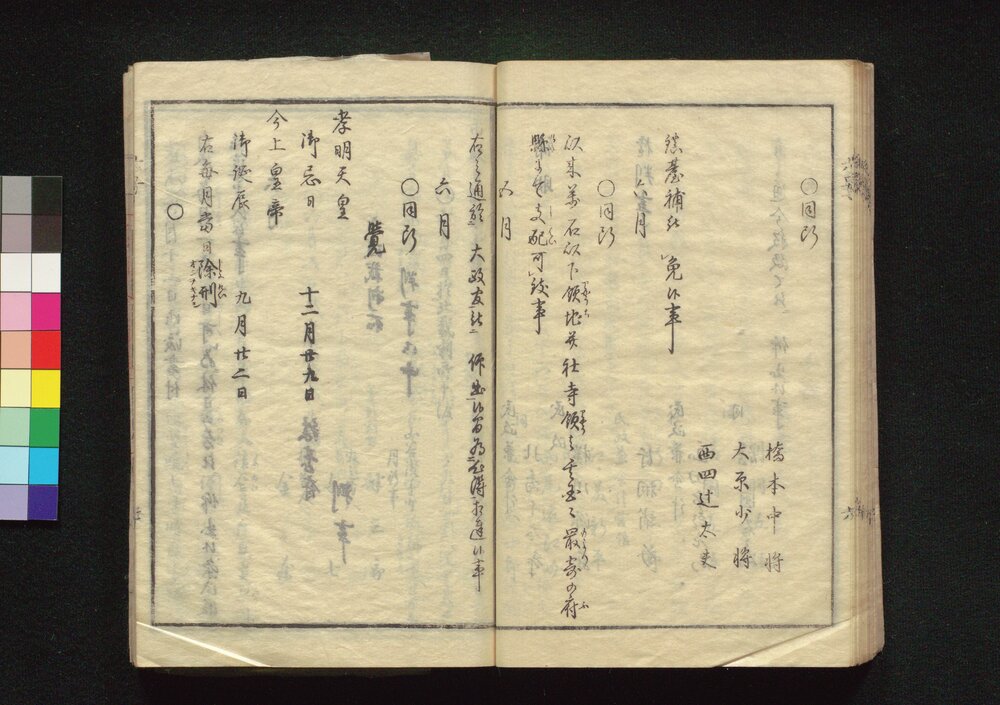 〇同断
橋本中将
大原少将
西四辻太夫
鎮臺補被 免候事
六月
〇同断
以来萬石以下領地并社寺領之支配
最寄の府
縣ニて支配可致事
六月
右之通於 大政官被 仰出候間為心得相達候事
六月
〇同断
覺
孝明天皇
御忌日 十二月廿九日
今上皇帝
御誕辰 九月廿二日
右毎月當日除刑
〇